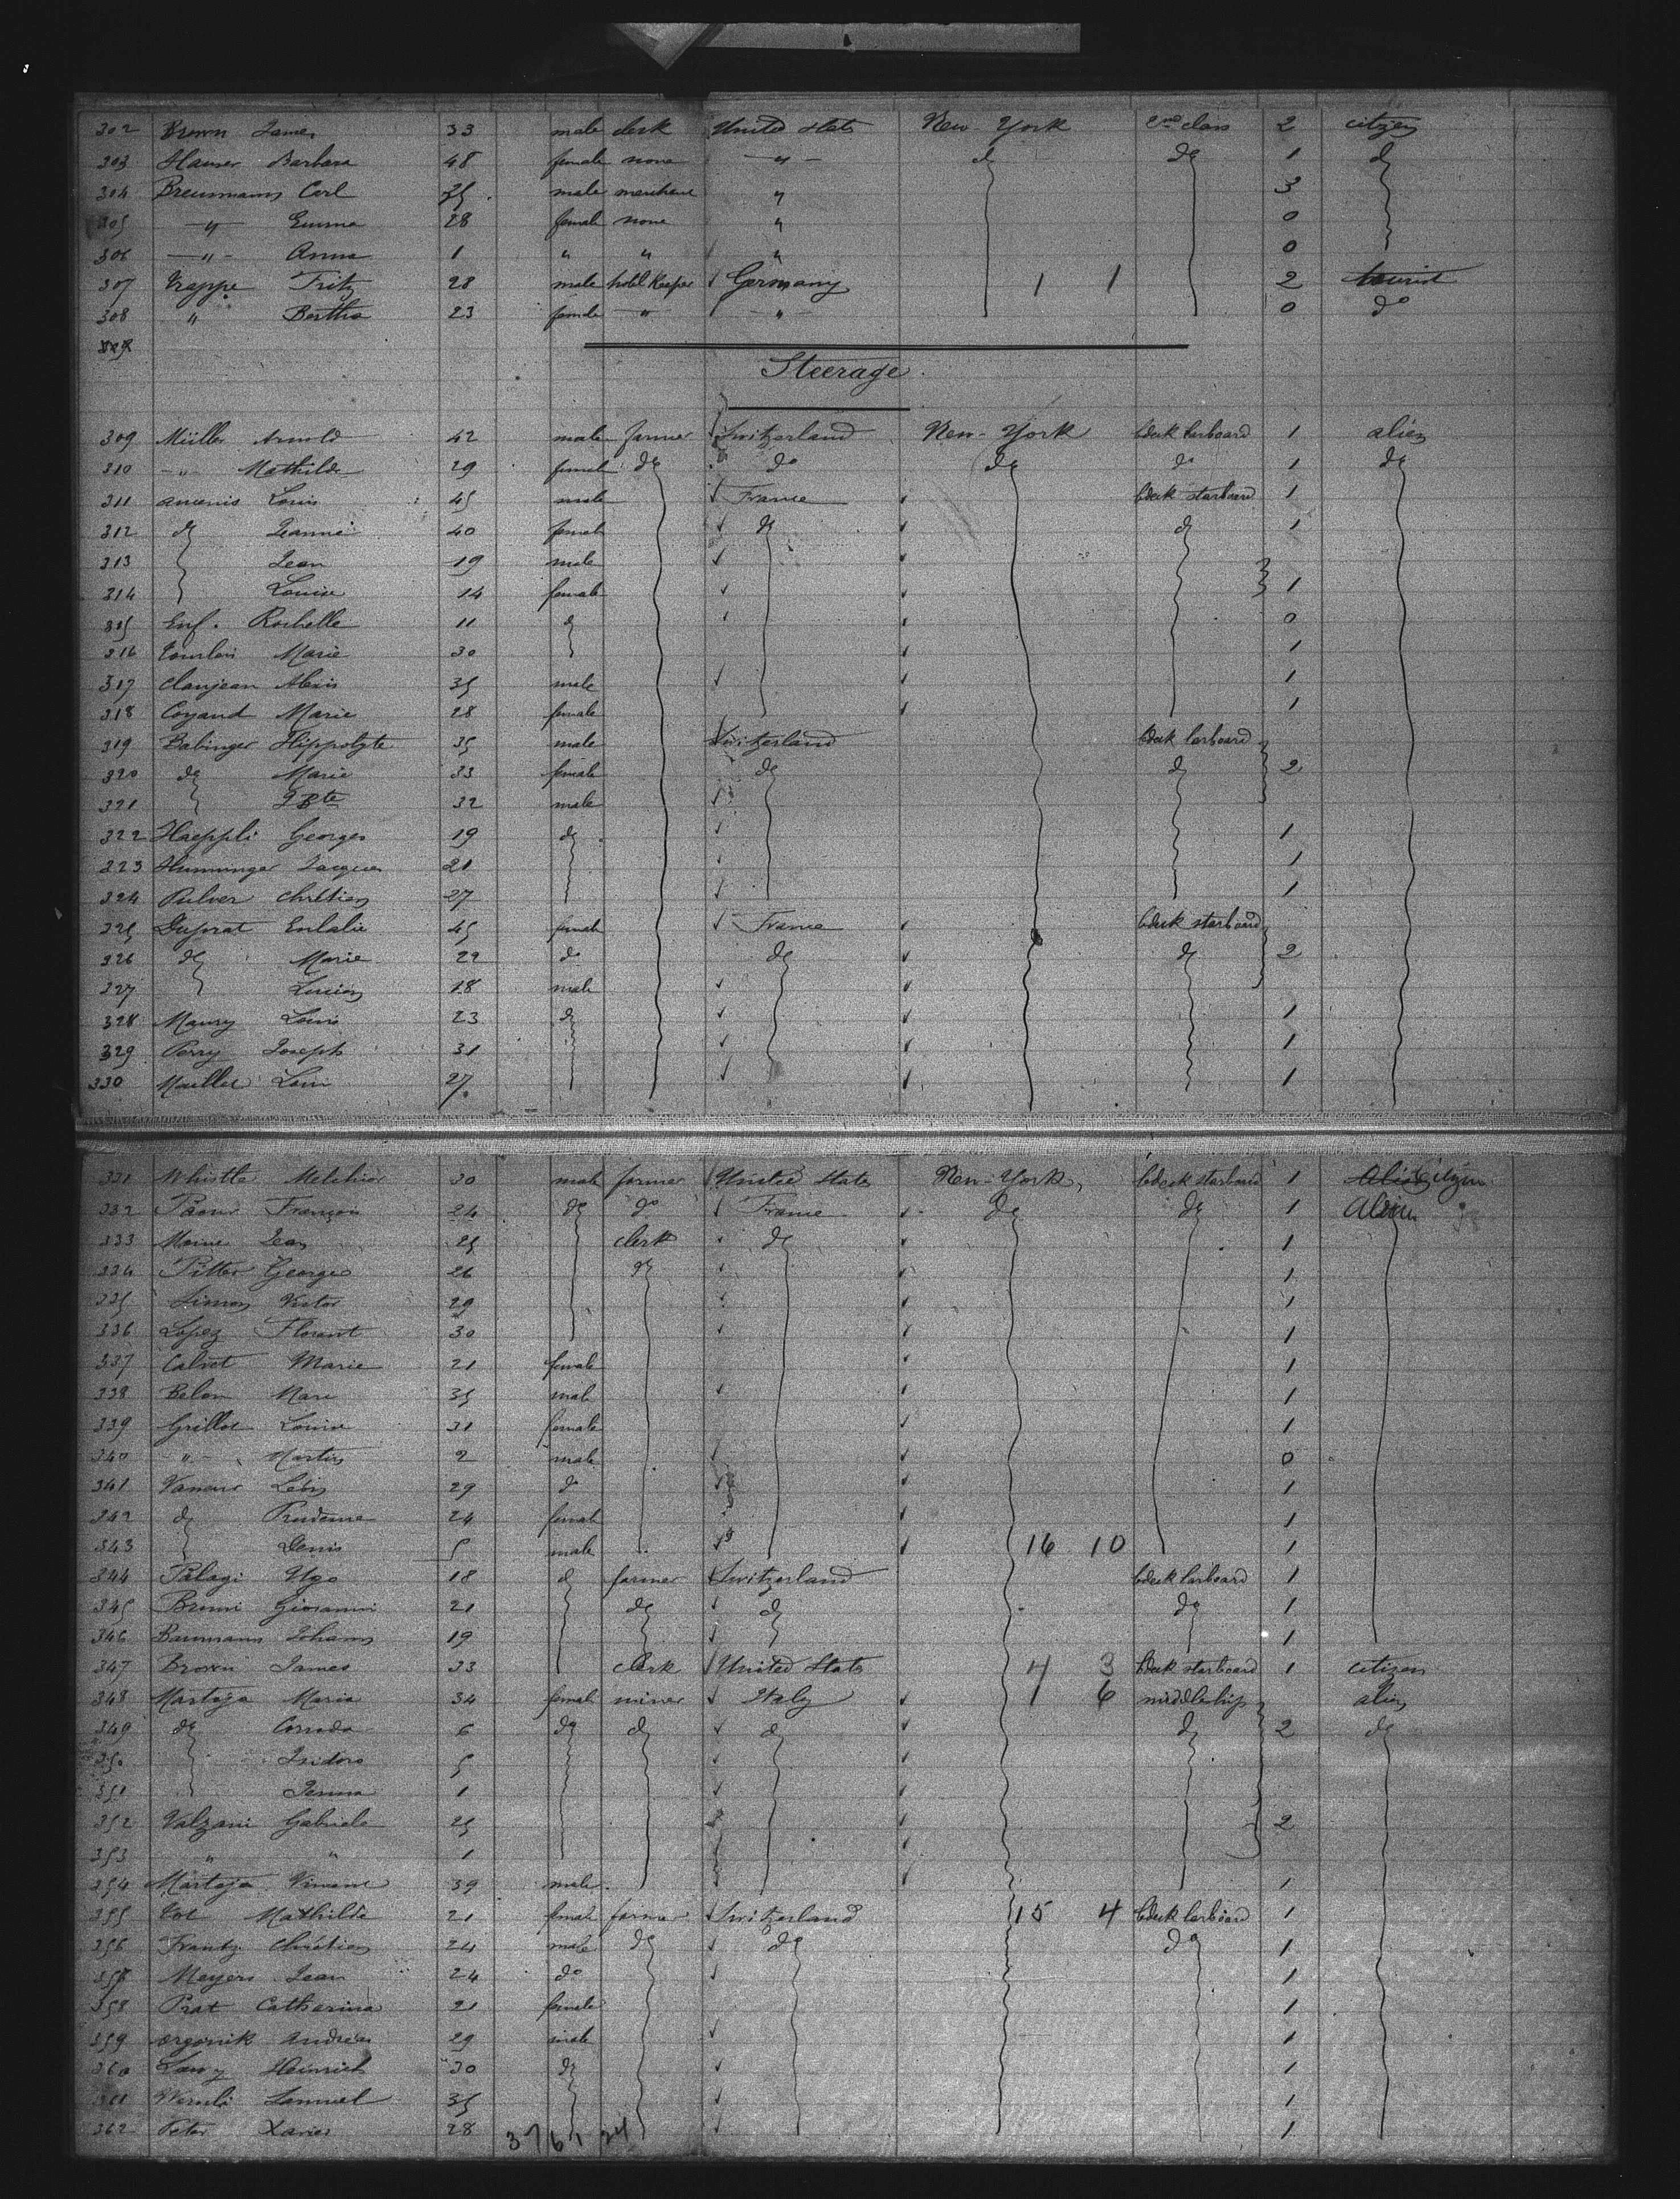 302 Brown James 33 male clerk United States New York 2nd class 2 citizen
303 Hauser Barbara 48 female none " do do 1 do
304 Breumann Carl 35 male merchant " 3
305 " Emma 28 female none " 0
306 " Anna 1 " " " 0
307 Trappe Fritz 28 male hotel Keeper Germany 1 1 2 tourist
308 " Bertha 23 female " " 0 do
309
Steerage
309 Müller Arnold 42 male farmer Switzerland New-York bdeck larboard 1 alien
310 " Mathilde 29 female do do do do 1 do
311 Louis 45 male France bdeck starboard 1
312 do Jeanne 40 female do do 1
313 Jean 19 male
314 Louise 14 female 1
315 Enf. Rochelle 11 do 0
316 Marie 30 1
317 Clanjean Alexis 35 male 1
318 Coyaud Marie 28 female 1
319 Babinger Hippolyte 35 male Switzerland bdeck larboard
320 do Marie 33 female do do 2
321 J Bte 32 male
322 Haeppli Georges 19 do 1
323 Humminger Jacques 21 1
324 Pulver Chrétien 27 1
325 Duprat Eulalie 45 female France bdeck starboard
326 do Marie 22 do do do 2
327 Lucien 18 male
328 Maury Louis 23 do 1
329 Perry Joseph 31 1
330 Maillet Louis 27 1
331 Whistle Melchior 30 male farmer United States New-York bdeck starboard 1 Alien Citizen
332 François 24 do do France do do 1 Alien
333 Moine Jean 25 clerk do 1
334 Pitter George 26 do 1
335 Simon Victor 29 1
336 Lopez Florent 30 1
337 Calvet Marie 21 female 1
338 Belon Marc 35 male 1
339 Grillot Louise 31 female 1
340 " Martin 2 male 0
341 29 do 1
342 do Prudence 24 female 1
343 Denis 5 male 16 10 1
344 Palagi Ugo 18 do farmer Switzerland bdeck larboard 1
345 Bruni Giovanni 21 do do do 1
346 Baumann Johann 19 1
347 Brown James 33 clerk United States 4 3 bdeck starboard 1 citizen
348 Martoja Maria 34 female miner Italy 1 6 middleship alien
349 do Corrado 6 do do do do 2 do
350 Isidoro 5
351 1
352 Valzani Gabriele 25 2
353 " " 1
354 Martoja 39 male 1
355 Mathilde 21 female farmer Switzerland 15 4 bdeck larboard 1
356 Frantz Chrétien 24 male do do do 1
357 Meyers Jean 24 do 1
358 Prat Catharina 21 female 1
359 Orgonik Andreas 29 male 1
360 Heinrich 30 do 1
361 Wernli Samuel 35 1
362 Peter Xavier 28 1
37 61 24